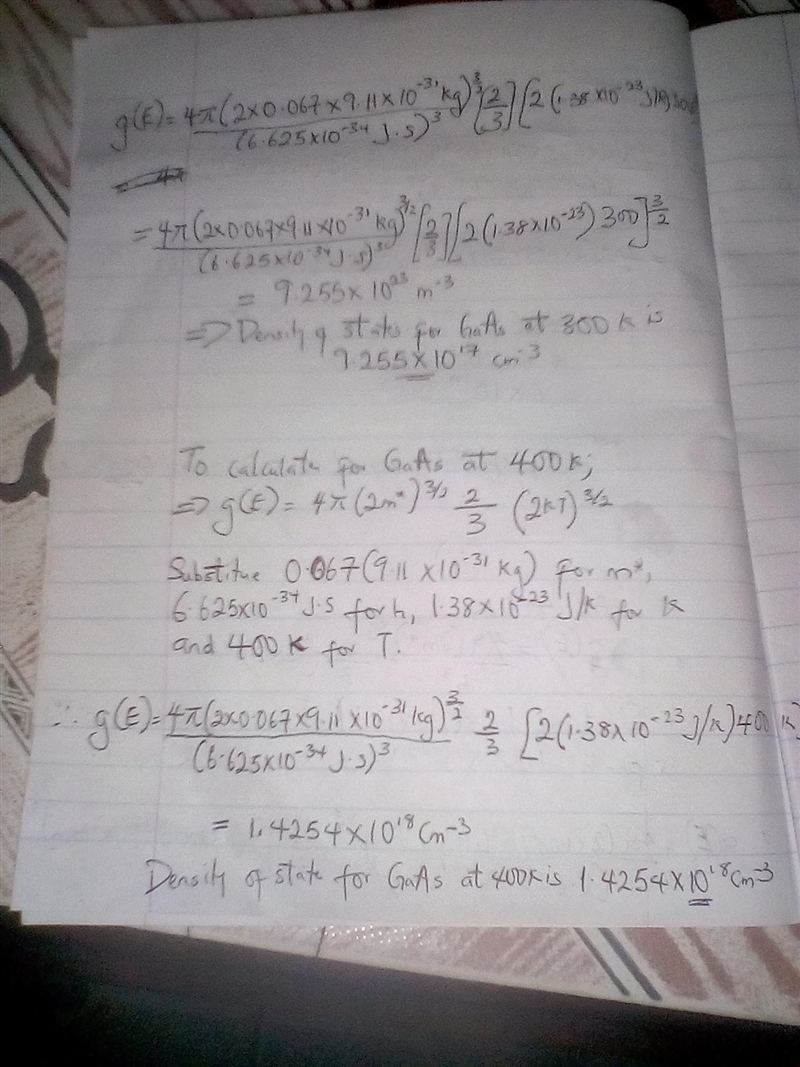 g(E) = 4π(2×0.067×9.11×10⁻³¹ kg)^3/2 / (6.625×10⁻³⁴ J.s)³ [2/3] [2(1.38×10⁻²³ J/k) 300
= 4π(2×0.067×9.11×10⁻³¹ kg)^3/2 / (6.625×10⁻³⁴ J.s)³ [2/3] [2(1.38×10⁻²³) 300]^3/2
= 9.255×10²³ m⁻³
=> Density of states for GaAs at 300 K is
9.255×10¹⁷ cm⁻³
To calculate for GaAs at 400K;
=> g(E) = 4π(2m*)^3/2 2/3 (2KT)^3/2
Substitue 0.067(9.11×10⁻³¹ kg) for m*,
6.625×10⁻³⁴ J.S for h, 1.38×10⁻²³ J/k for K
and 400 K for T.
∴ g(E) = 4π(2×0.067×9.11×10⁻³¹ kg)^3/2 / (6.625×10⁻³⁴ J.s)³ 2/3 [2(1.38×10⁻²³ J/k)400 K]
= 1.4254×10¹⁸ Cm⁻³
Density of state for GaAs at 400K is 1.4254×10¹⁸ Cm⁻³